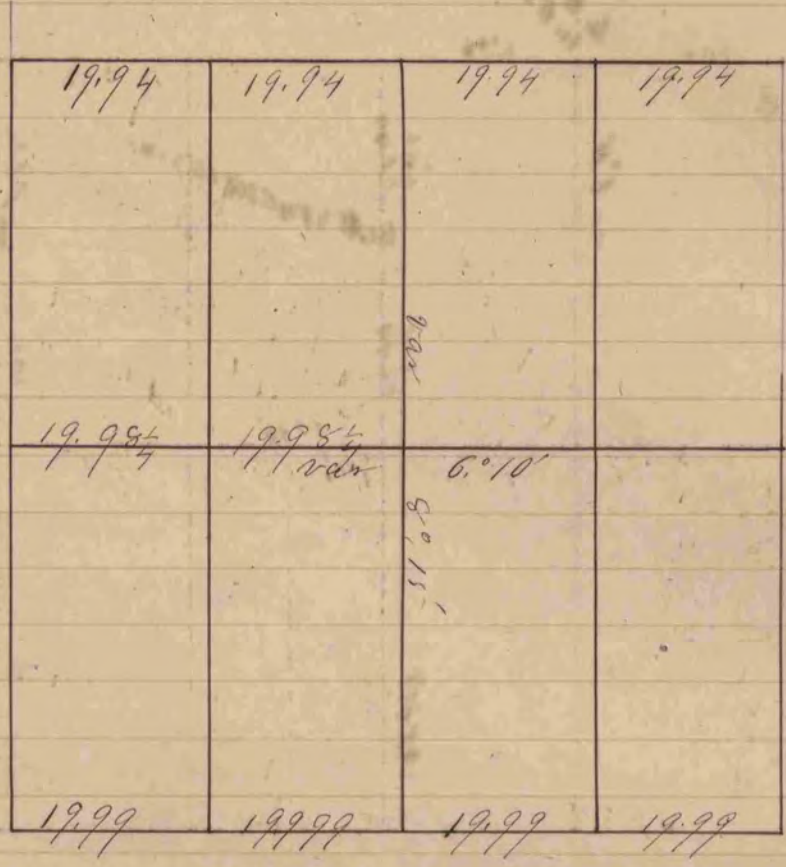 19.94 19.94 19.94 19.94
var
19.98 1/4 19.98 1/4
var 6.°10'
8°,15'
19.99 19999 19.99 19.99